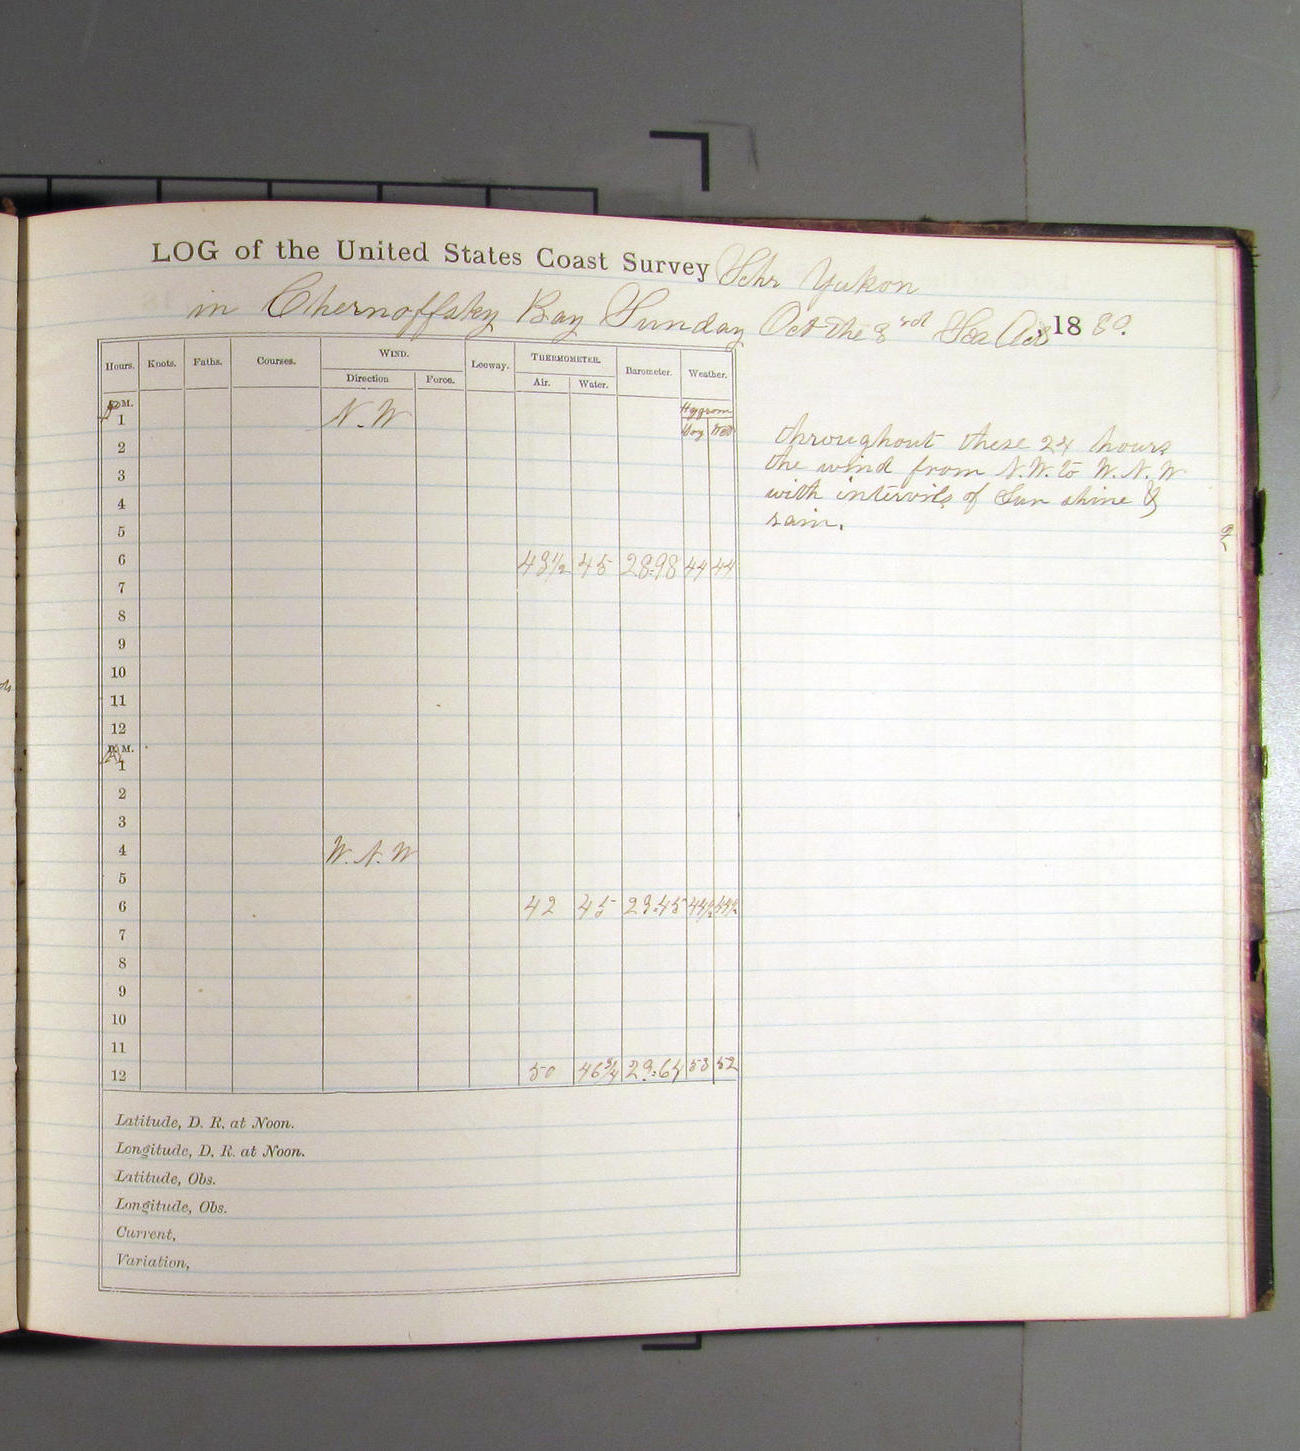 LOG of the United States Coast Survey Schr Yukon
in Chernoffsky Bay Sunday Oct the 3rd Sea Acts 18 80.
Hours. Knots. Faths. Courses. WIND. Leeway. THERMOMETER. Barometer. Weather.
Direction Force. Air. Water.
P M. Hygrom
1 N. W Dry Wet
2
3
4
5
6 43½ 45 28.98 44 44
7
8
9
10
11
12
A M.
1
2
3
4 W. N. W
5
6 42 45 29.45 44½ 44½
7
8
9
10
11
12 50 46¾ 29.64 53 52
throughout these 24 hours
the wind from N.W. to W. N. W
with intervils of Sun shine &
rain.
Latitude, D. R. at Noon.
Longitude, D. R. at Noon.
Latitude, Obs.
Longitude, Obs.
Current,
Variation,